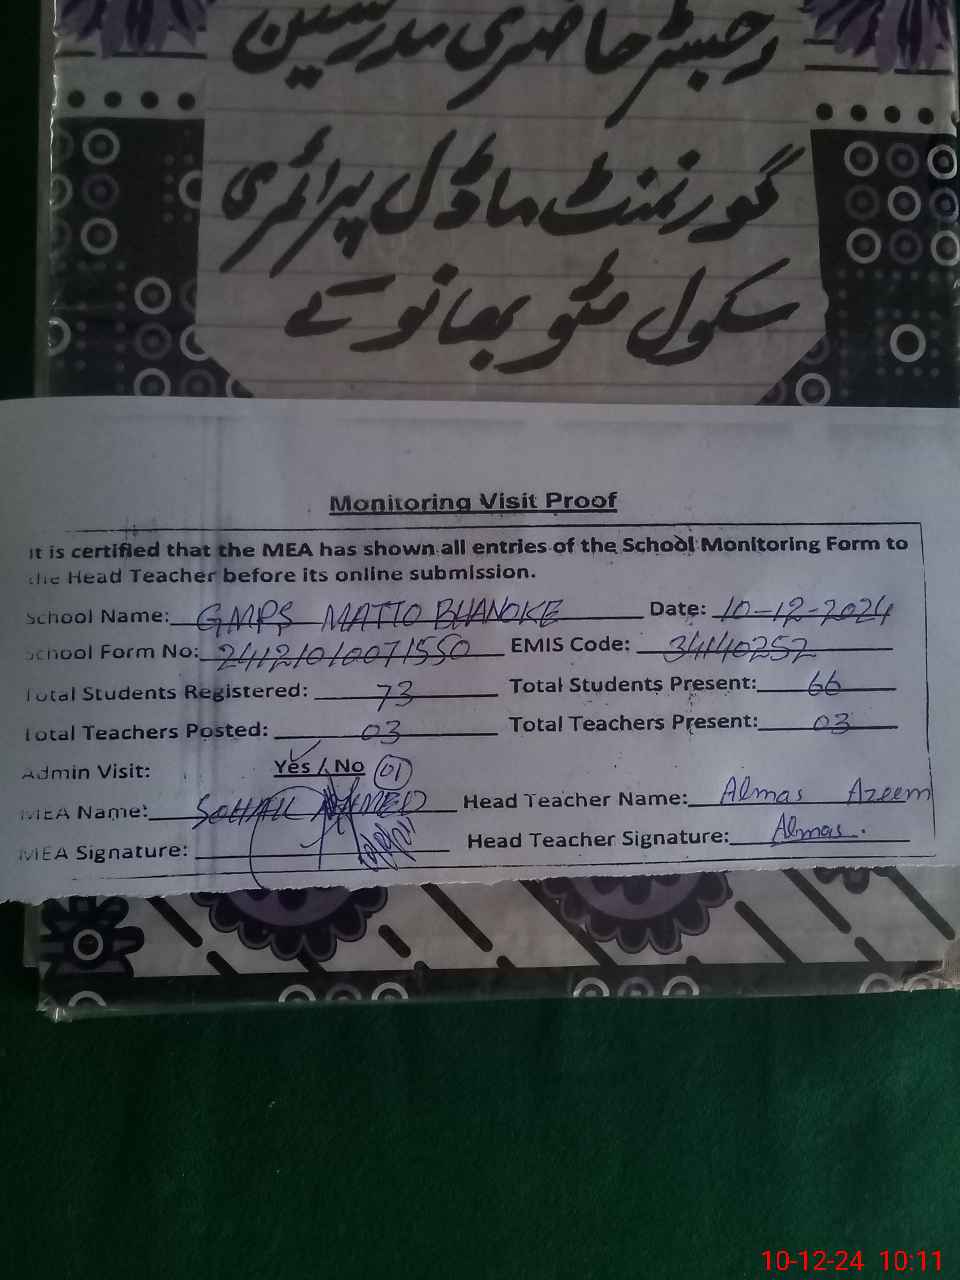 رجسٹر حاضری مدرسین
گورنمنٹ ماڈل پرائمری
سکول مٹو بھانوکے
Monitoring Visit Proof
It is certified that the MEA has shown all entries of the School Monitoring Form to
the Head Teacher before its online submission.
School Name: GMPS MATTO BHANOKE Date: 10-12-2024
School Form No: 24121010071550 EMIS Code: 34140252
Total Students Registered: 73 Total Students Present: 66
Total Teachers Posted: 03 Total Teachers Present: 03
Admin Visit: Yes / No 01
MEA Name: SOHAIL AHMED Head Teacher Name: Almas Azeem
MEA Signature: Head Teacher Signature: Almas.
10-12-24 10:11